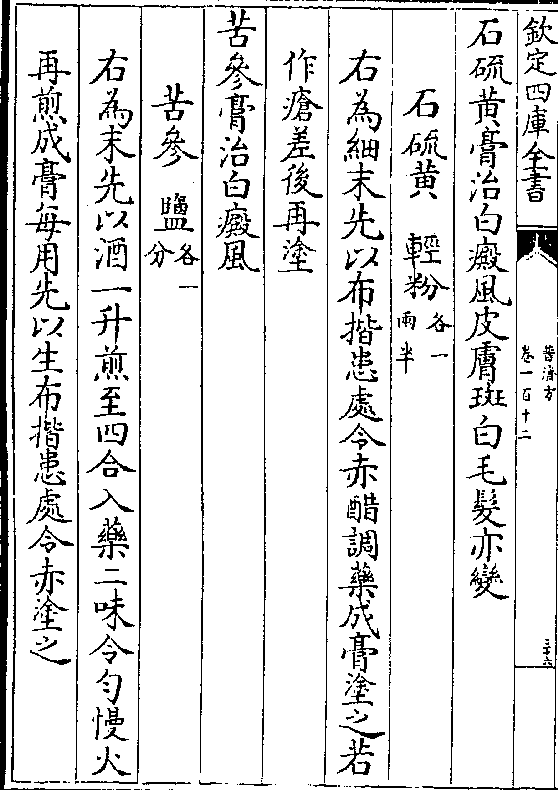 欽定四庫全書
普濟方
卷一百十二
三十六
石硫黄膏治白癜風皮膚斑白毛髮亦變
石硫黄　輕粉各一兩半
右為細末先以布揩患處令赤醋調藥成膏塗之若
作瘡差後再塗
苦參膏治白癜風
苦參　鹽各一分
右為末先以酒一升煎至四合入藥二味令勻慢火
再煎成膏每用先以生布揩患處令赤塗之